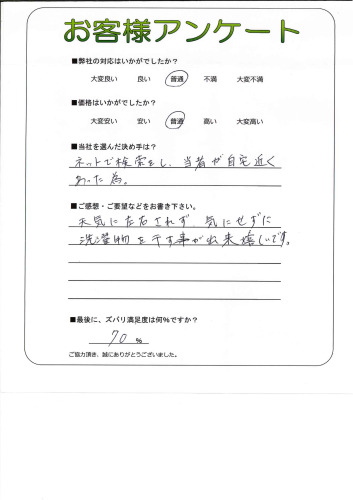 お客様アンケート
■弊社の対応はいかがでしたか?
大変良い 良い 普通 不満 大変不満
■価格はいかがでしたか?
大変安い 安い 普通 高い 大変高い
■当社を選んだ決め手は?
ネットで検索をし、当者が自宅近く
あった為。
■ご感想・ご要望などをお書き下さい。
天気に左右されず 気にせずに
洗濯物を干す事が出来嬉しいです。
■最後に、ズバリ満足度は何%ですか?
70 %
ご協力頂き、誠にありがとうございました。